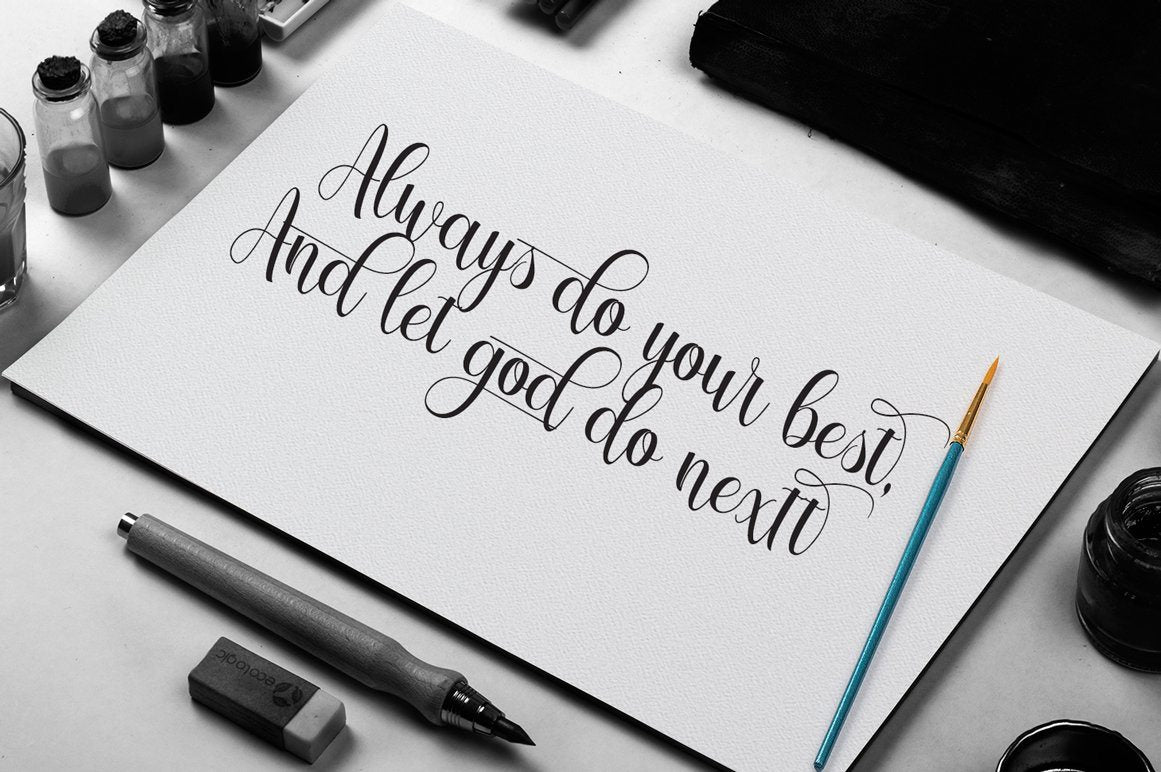 Always do your best,
And let god do nextt
ecologic